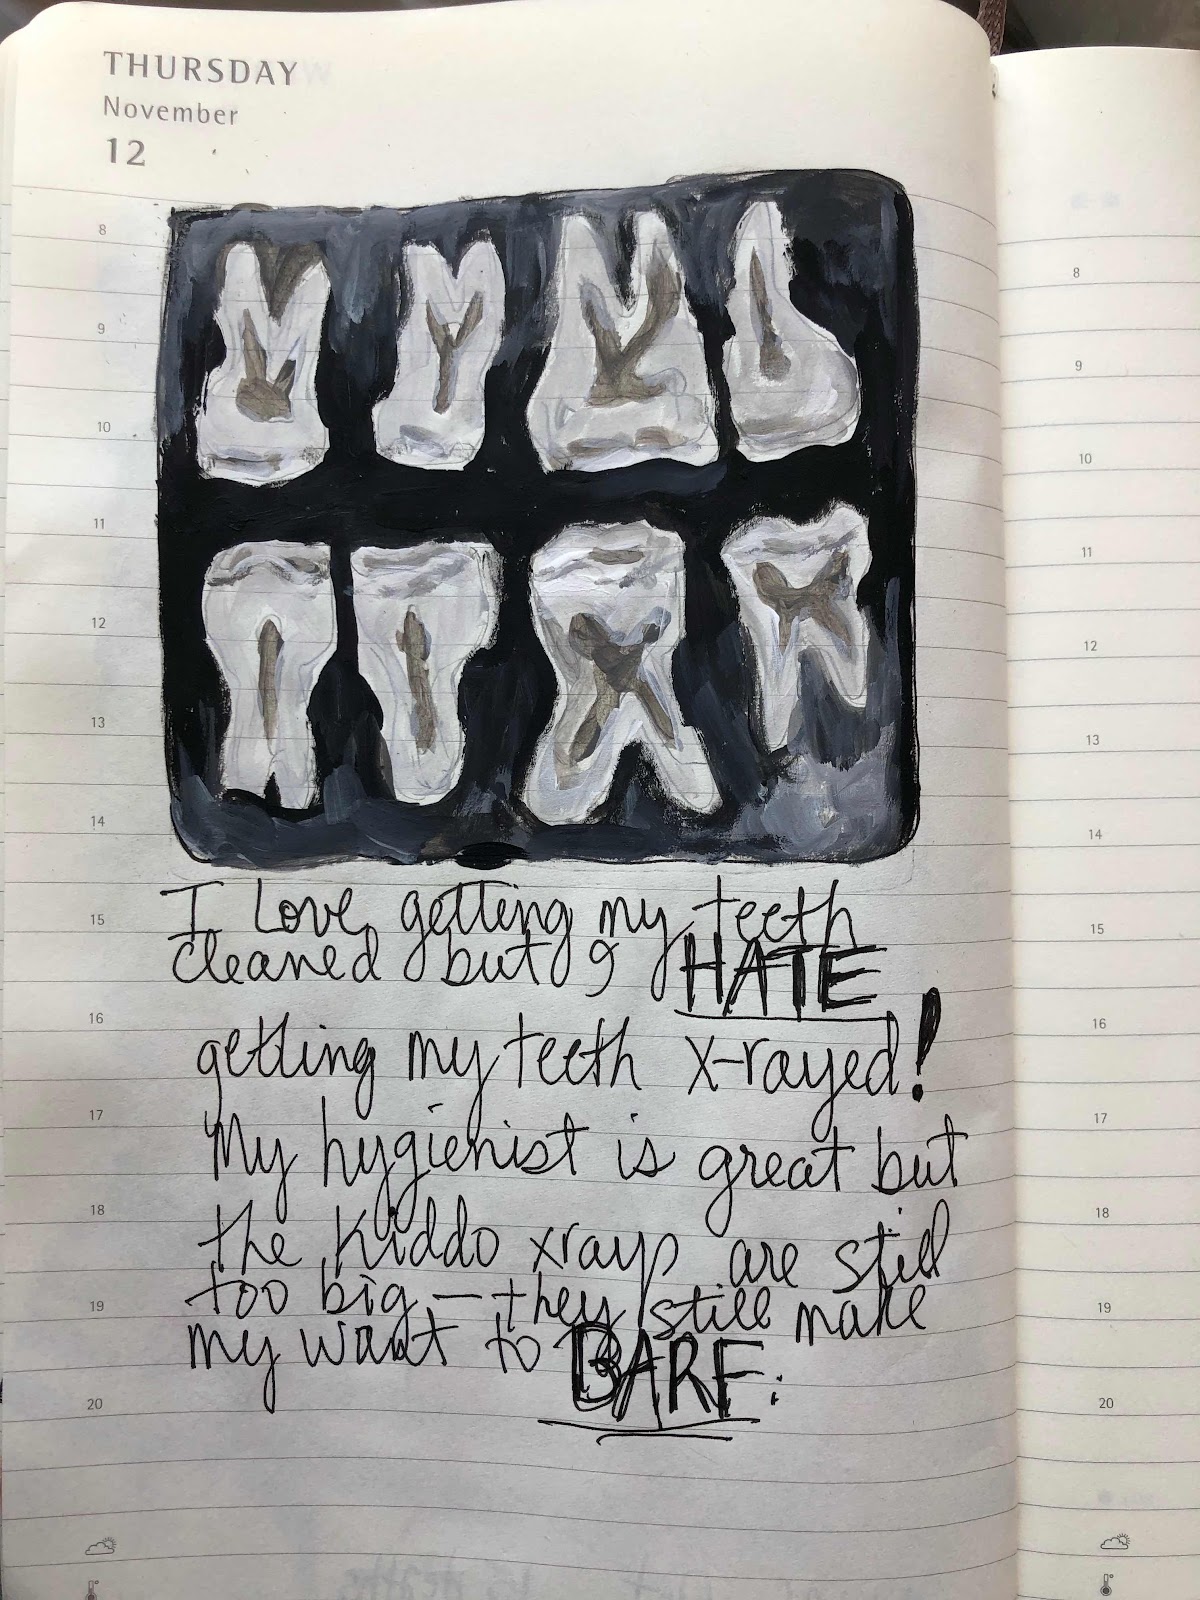 THURSDAY
November
12
8
9
10
11
12
13
14
15
16
17
18
19
20
I Love getting my teeth
cleaned but I HATE
getting my teeth x-rayed!
My hygienist is great but
the kiddo xrays are still
too big — they still make
my want to BARF.
8
9
10
11
12
13
14
15
16
17
18
19
20